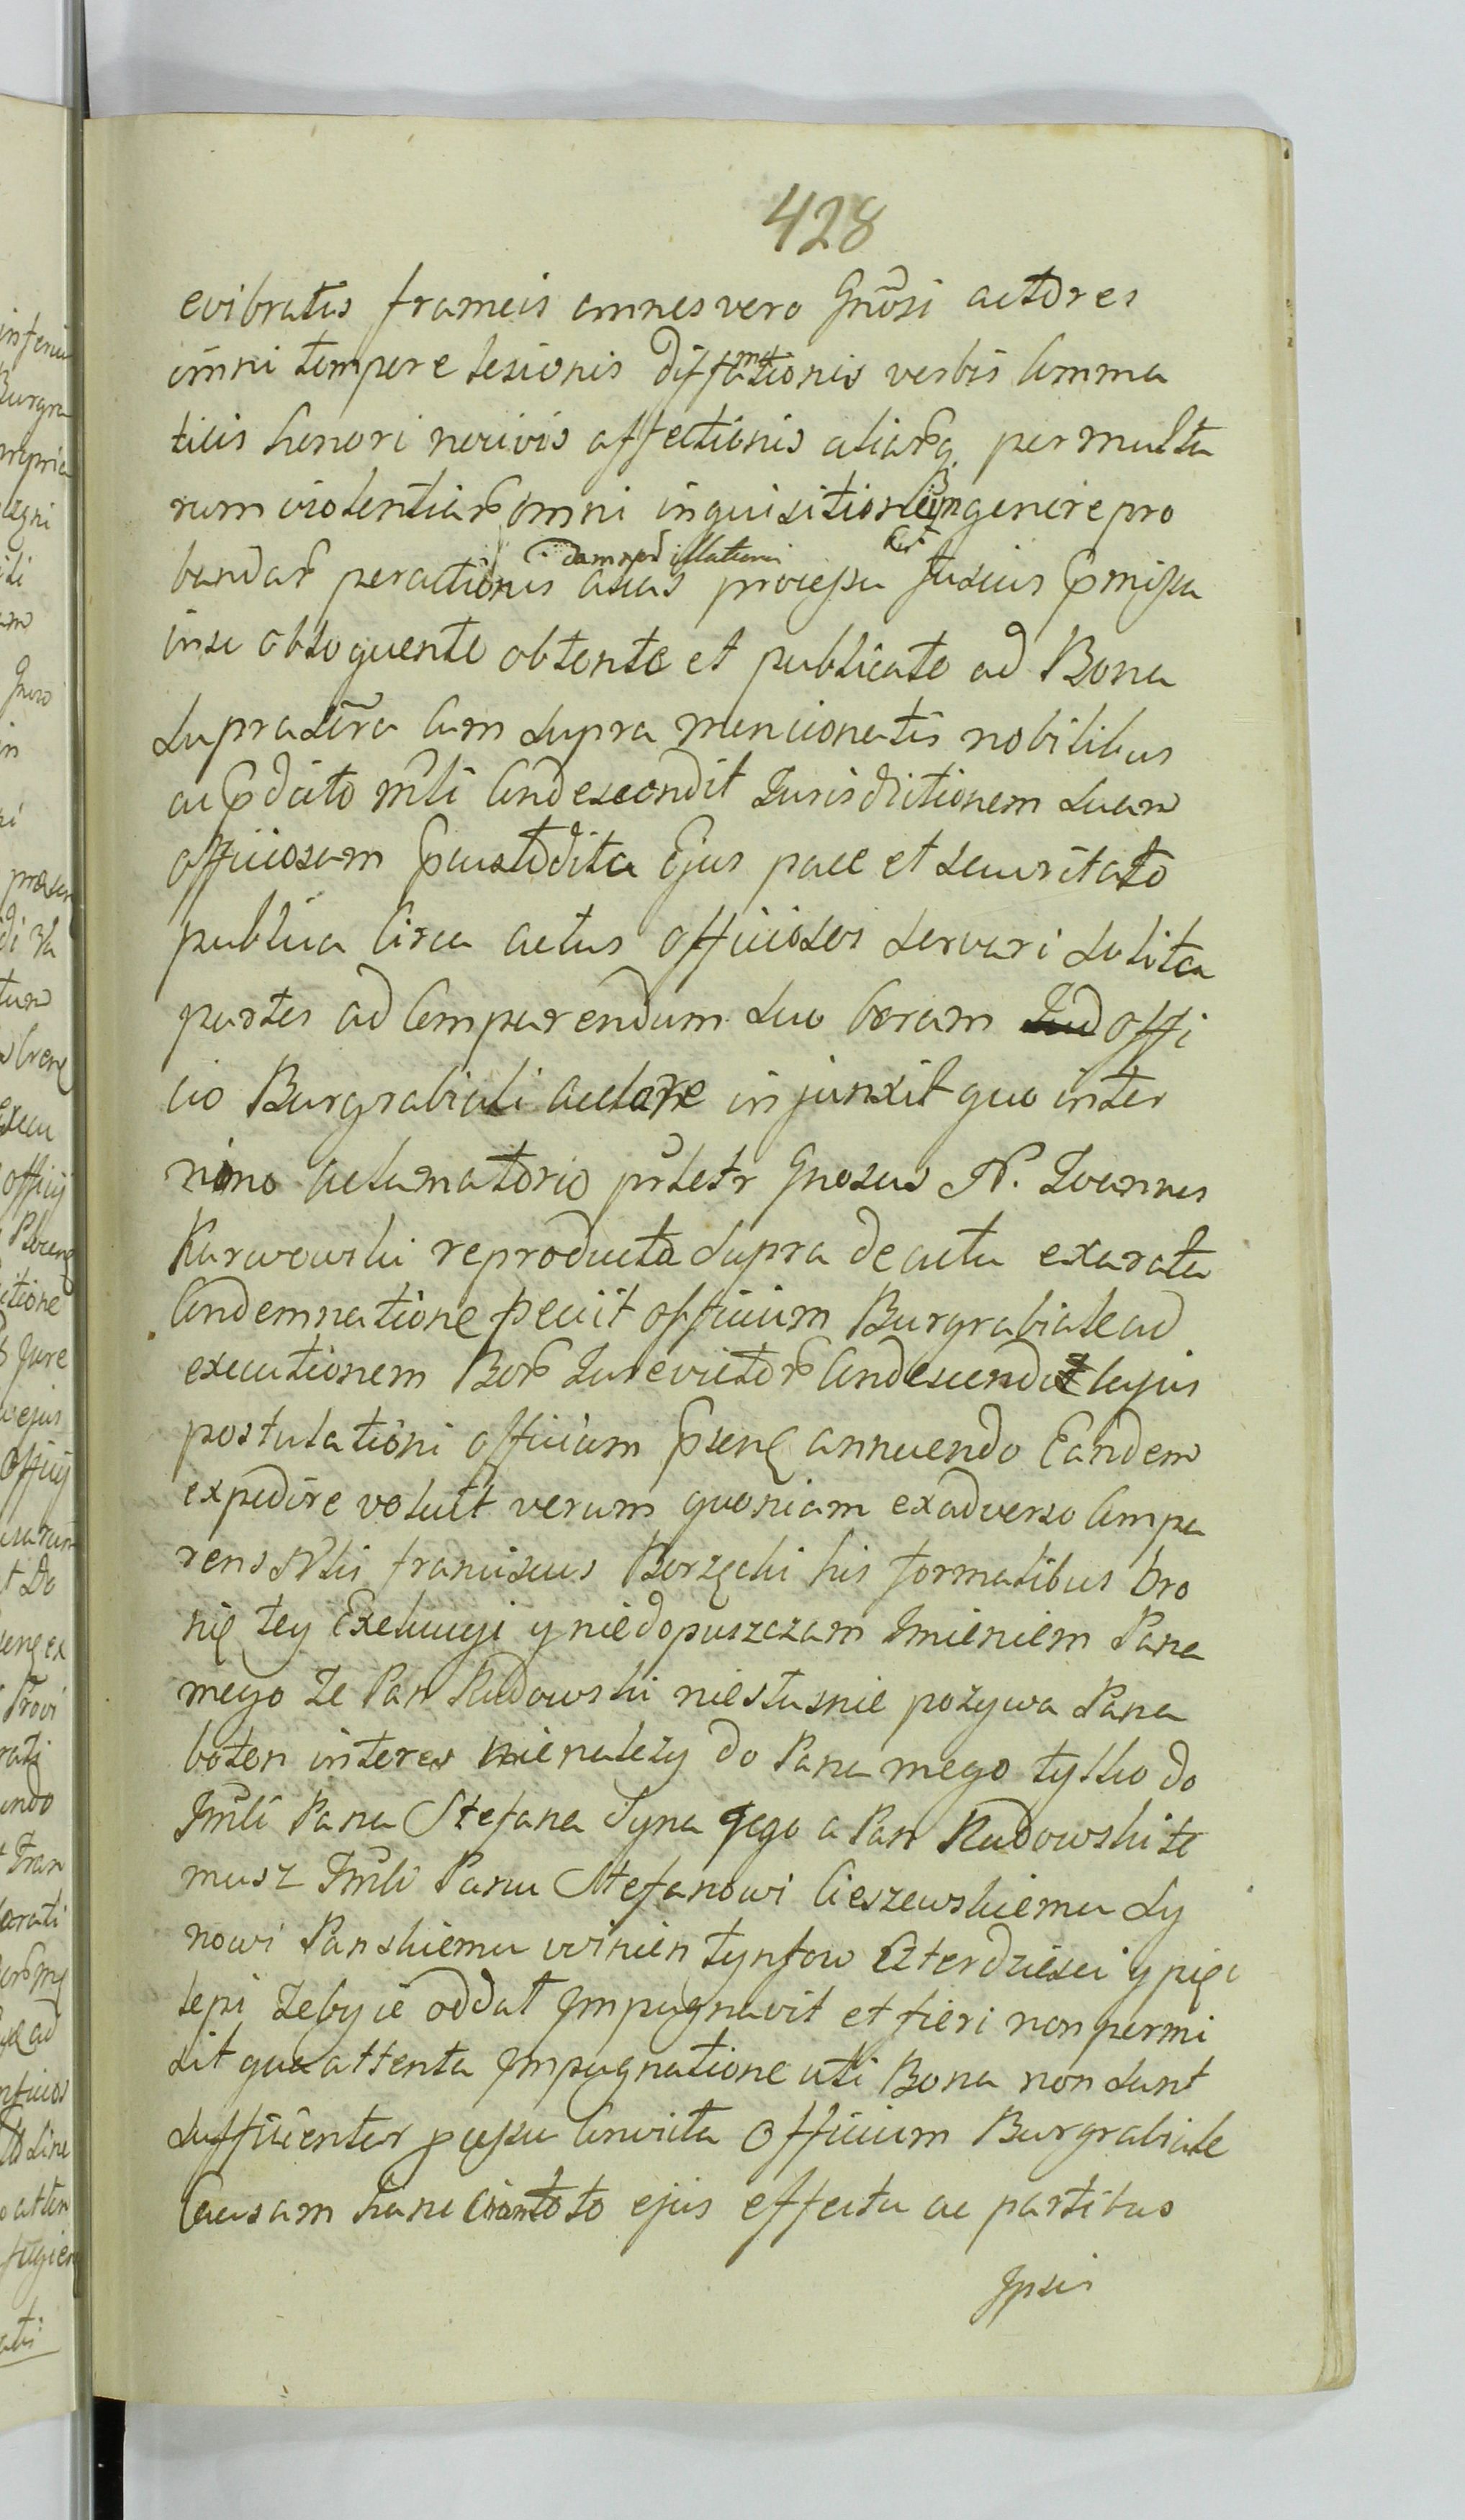 428
evibratis frameis omnes vero Gnosi actores
omni tempore lesionis diffamationis verbis comma
ticis honori nocivis affectionis aliarq permulta
rum violentiar omni inquisitione in genere pro
bandar perationis damnor illationi causas processu Juscius pmissa
inse obloquente obtente et publicato ad Bona
suprascra cum supra mencionatis nobilibus
ac pdicto mli condescendit Jurisdictionem suam
officiosam fundavit pcustodita Ejus pace et securitate
publica circa actus officiosos servari solita
partes ad comparendum suo coram offi
cio Burgrabiali actore injunxit quo in ter
mino actamatorio prletr Gnosus N. Joannes
Karwowski reproducta supra de actu exarata
Condemnatione peciit officium Burgrabiale ad
executionem Bor Jurevictor condescendi cujus
postulationi officium psens annuendo Eandem
expedire voluit verum quoniam ex adverso compa
rens Nlis Franciscus Borzęcki his formalibus bro
nię tey Exekucyi y niedopuszczam Imieniem Pana
mego że Pan Rudowski niesłusnie pozywa Pana
boten interes nienalezy do Pana mego tylko do
Jmsci Pana Stefana Syna jego a Pan Rudowski te
musz Jmsci Panu Stefanowi Cieszewskiemu Sy
nowi Panskiemu winien tynfow czterdziesci y pięc
lepi zeby ie oddał Impugnavit et fieri non permi
sit qua attenta Impugnatione uti Bona non sunt
sufficienter pcessu convicta Officium Burgrabiale
Causam hanc cum toto ejus effectu ac partibus
Ipsis